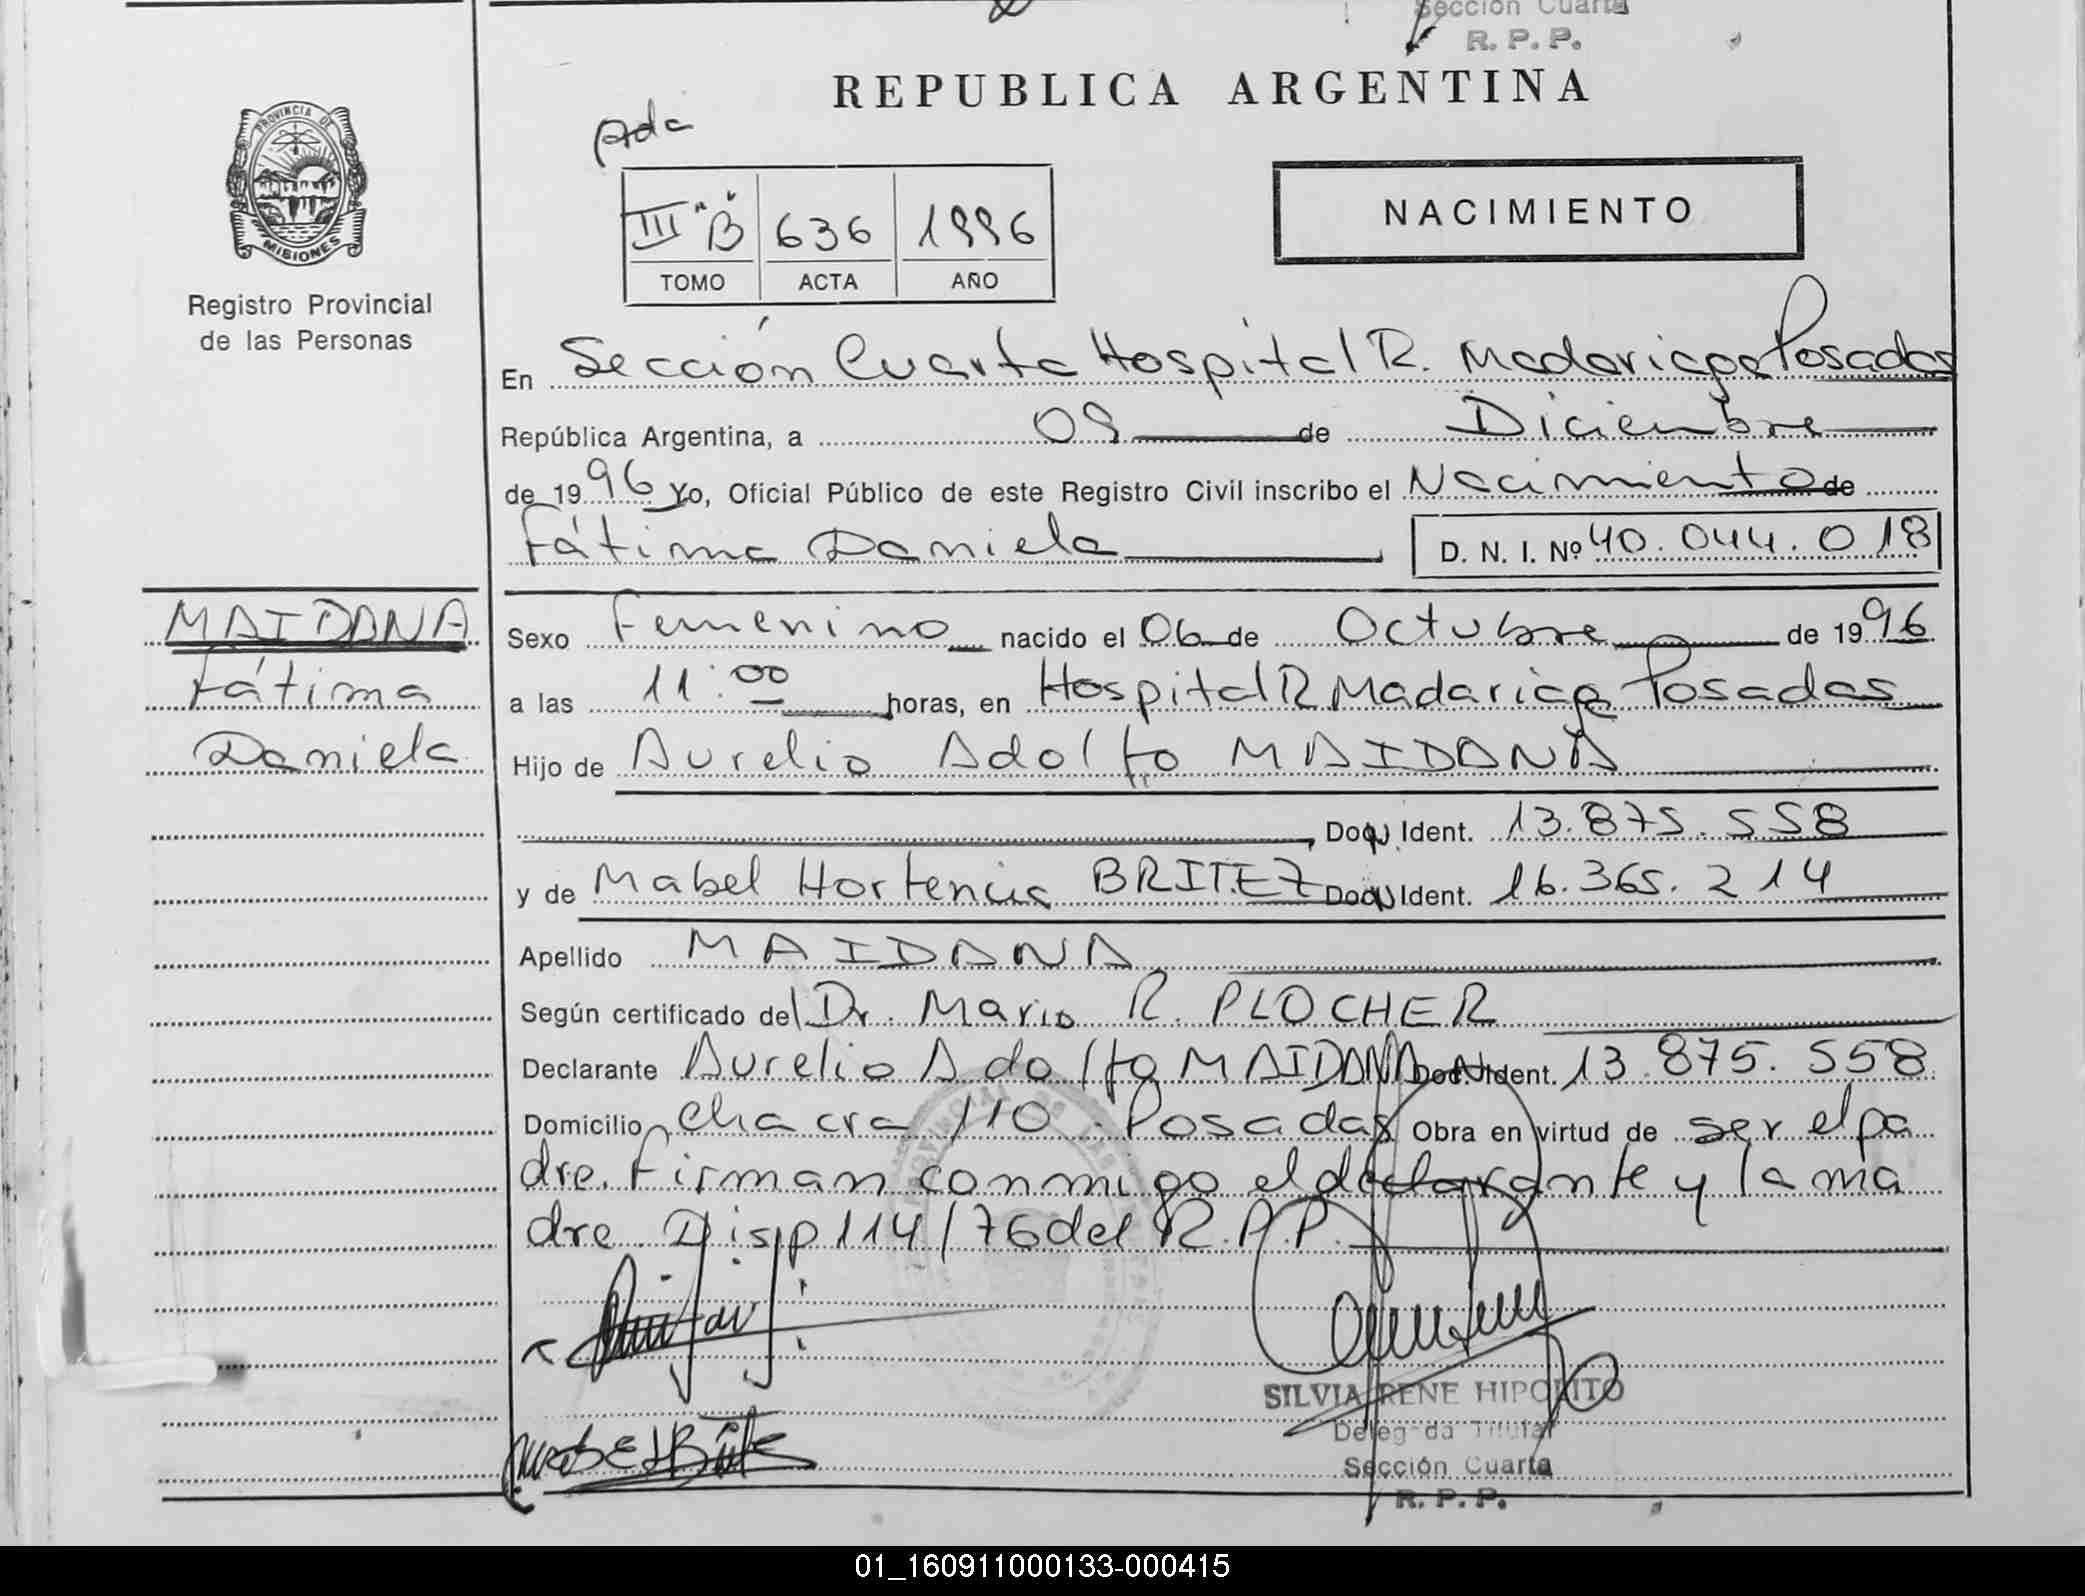 Sección Cuarta
R. P. P.
REPUBLICA ARGENTINA
PROVINCIA DE
MISIONES
Registro Provincial
de las Personas
III "B" 636 1996
TOMO ACTA AÑO
NACIMIENTO
En Sección Cuarta Hospital R. Madariaga Posadas
República Argentina, a 09 de Diciembre
de 1996 Yo, Oficial Público de este Registro Civil inscribo el Nacimiento de
Fátima Daniela D. N. I. Nº 40.044.018
MAIDANA
Fátima
Daniela
Sexo Femenino nacido el 06 de Octubre de 1996
a las 11:00 horas, en Hospital R Madariaga Posadas
Hijo de Aurelio Adolfo MAIDANA
Ident. 13.875.558
y de Mabel Hortencia BRITEZ Ident. 16.365.214
Apellido MAIDANA
Según certificado del Dr. Mario R. PLOCHER
Declarante Aurelio Adolfo MAIDANA Ident. 13.875.558
Domicilio Chacra 110. Posadas Obra en virtud de ser el pa
dre. Firman conmigo el declarante y la ma
dre Disp 114/76 del R.P.P.
SILVIA RENE HIPOLITO
Delegada Titular
Sección Cuarta
R. P. P.
01_160911000133-000415